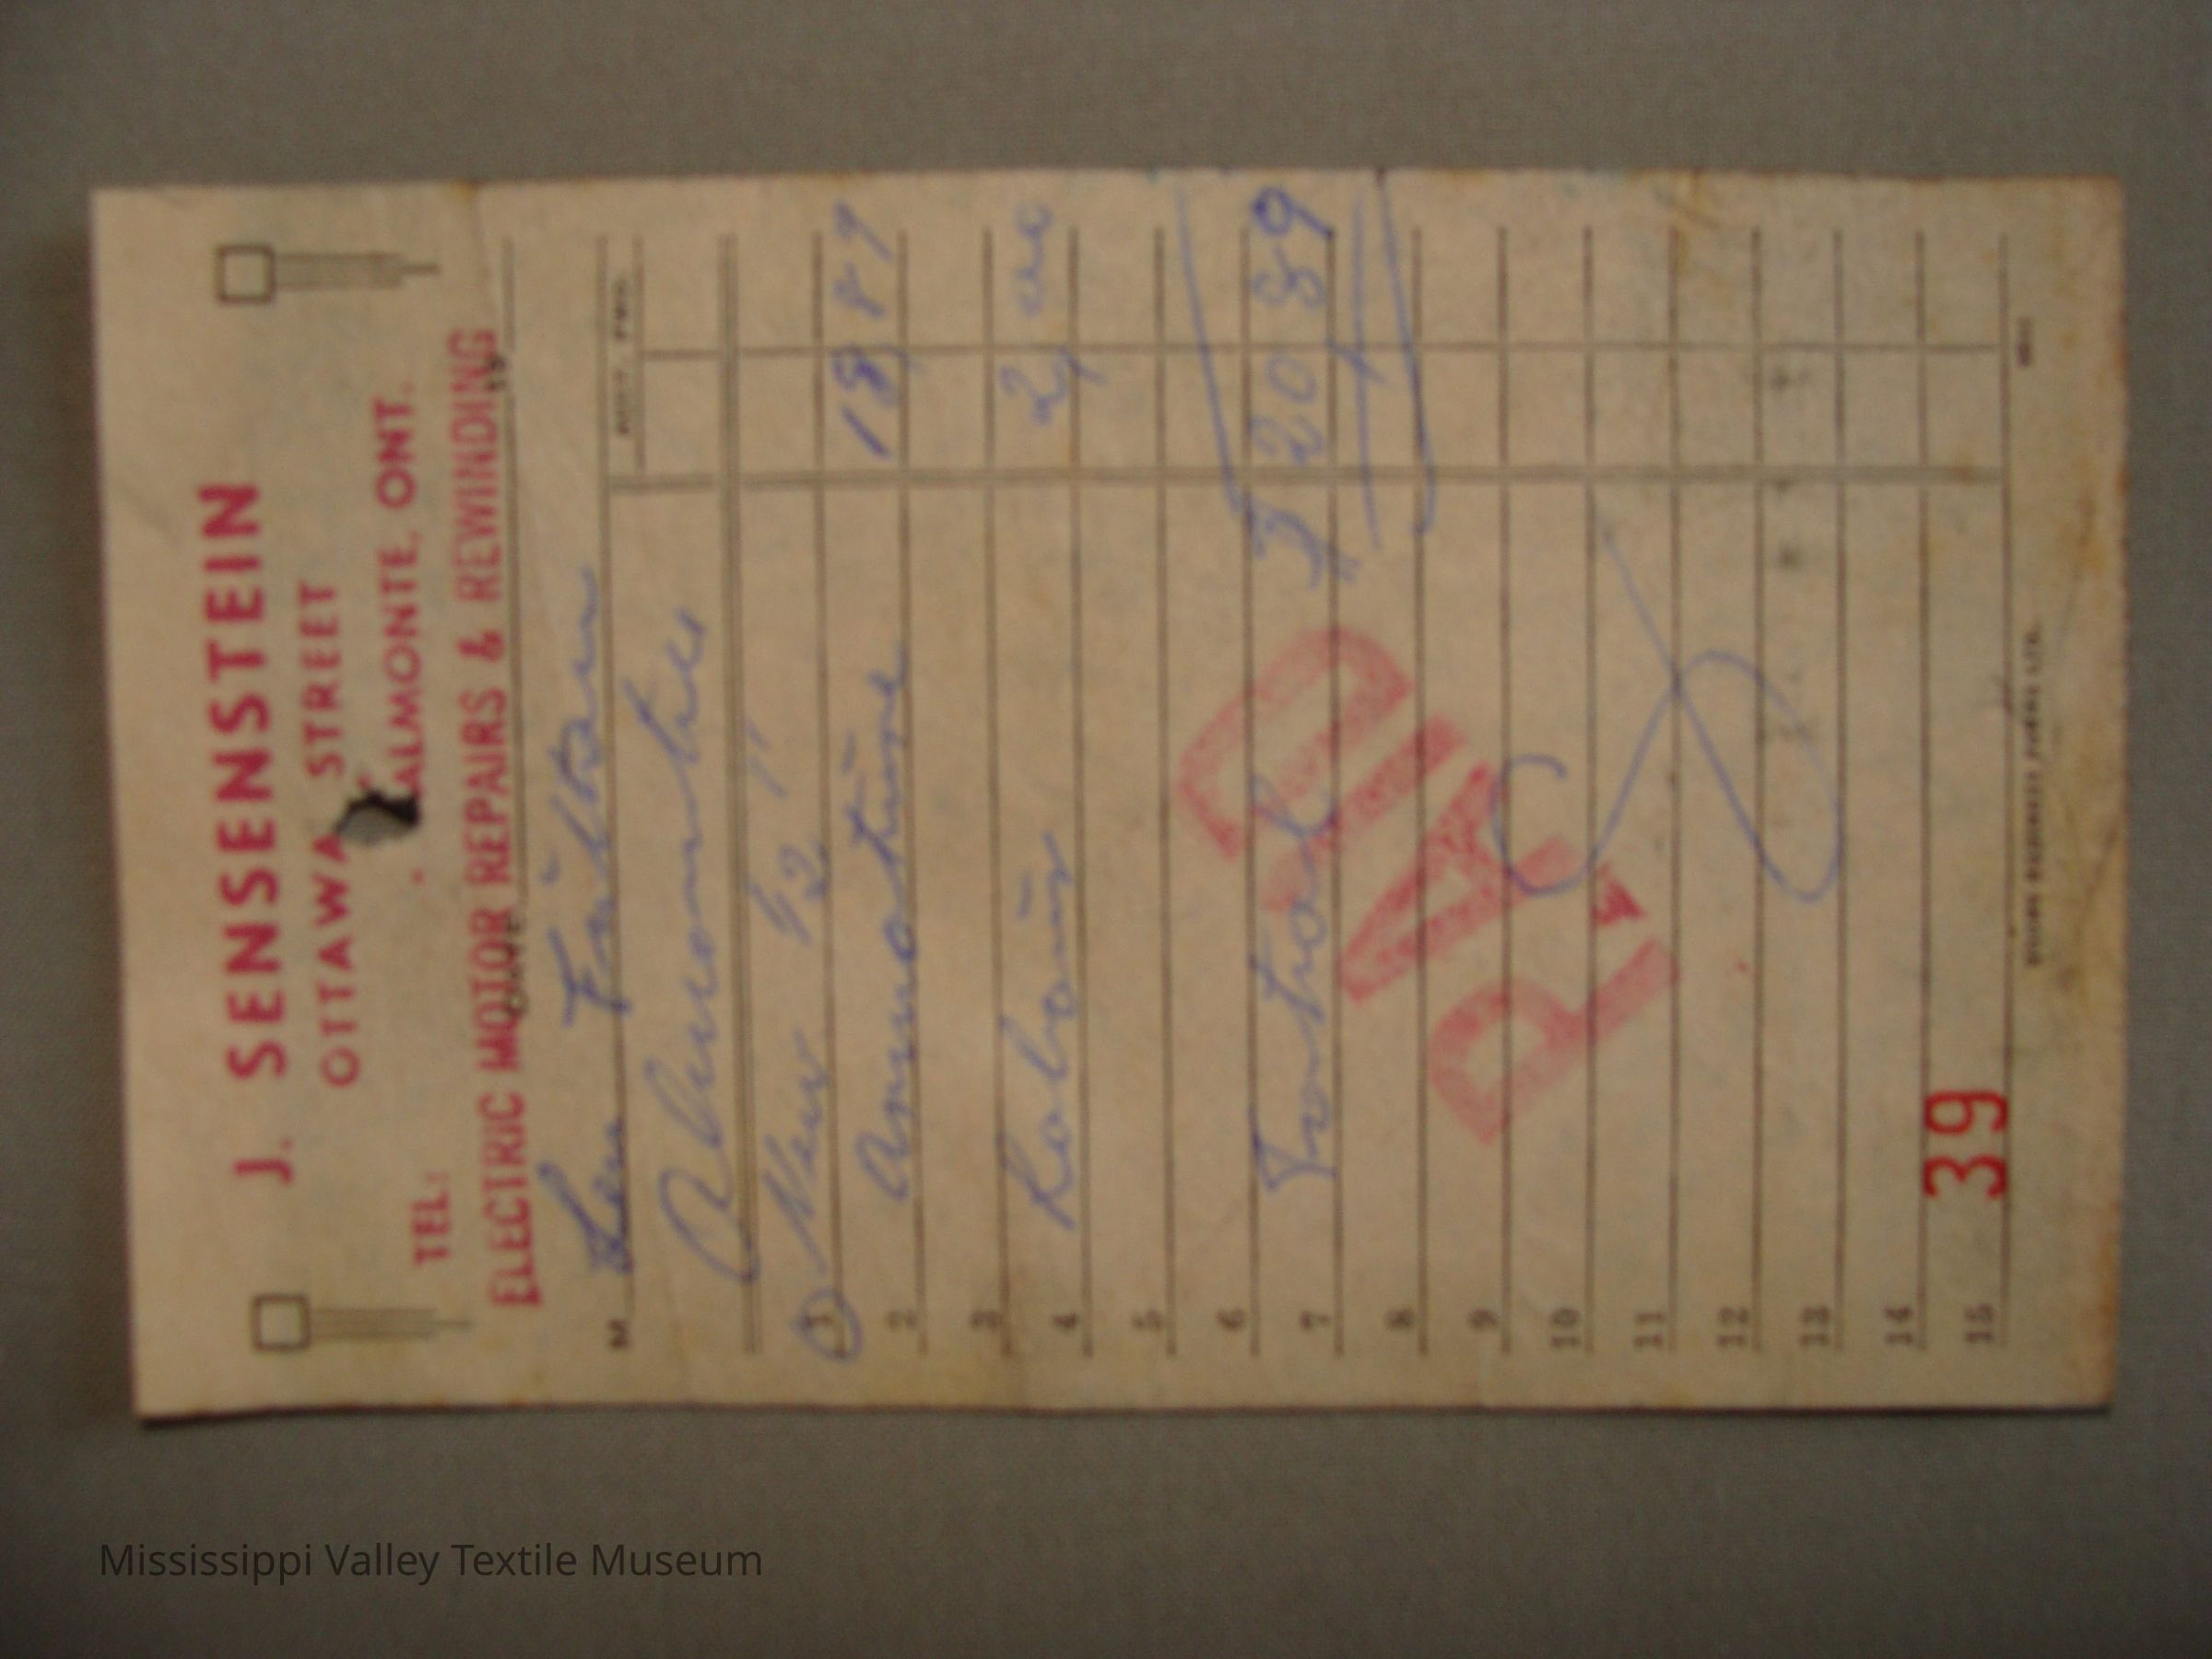 J. SENSENSTEIN
OTTAWA STREET
TEL: ALMONTE, ONT.
ELECTRIC MOTOR REPAIRS & REWINDING
DATE 19
M Len
ACC'T. FWD.
1 New 1/2"
2 Armature 18 89
3
4 Labour 2 00
5
6
7 Total $20 89
8
9
10
11
12
13
14
15
PAID
39
Mississippi Valley Textile Museum